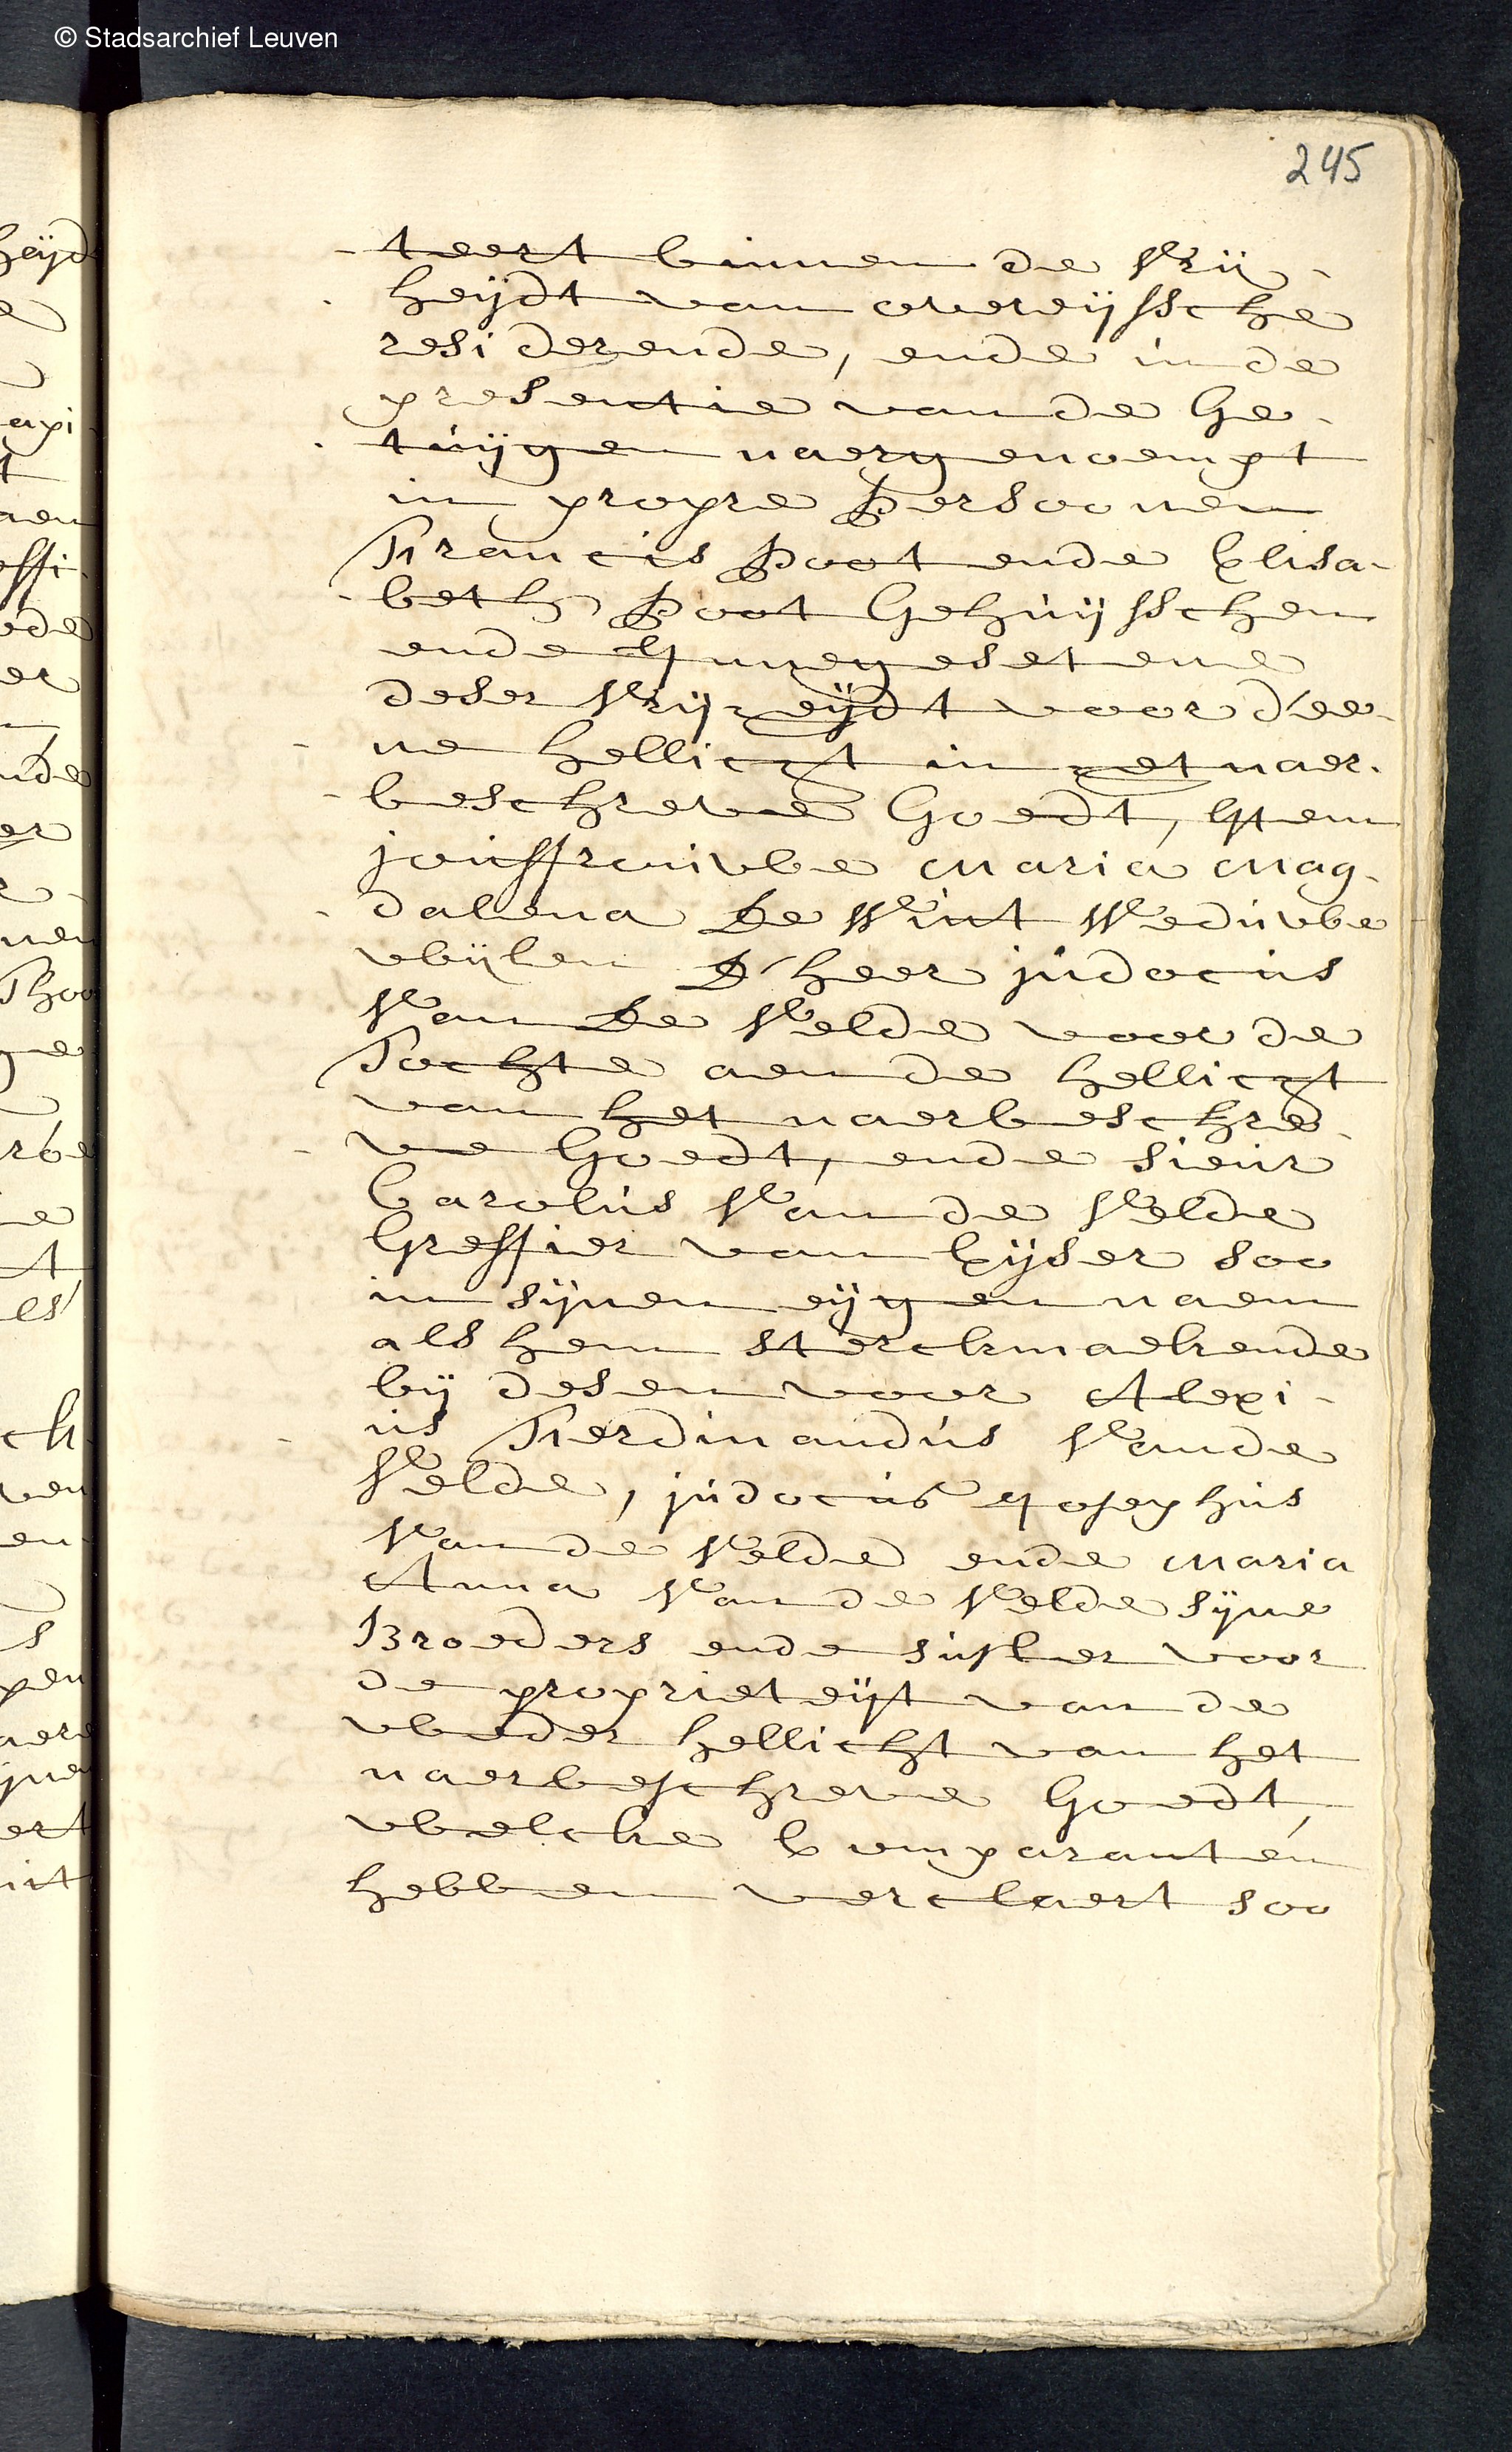 © Stadsarchief Leuven
245
teert binnen de Vrij-
heijdt van overeijssche
residerende, ende in de
presentie van de Ge-
tuijgen naergenoempt
in propre persoonen
Francis Poot ende Elisa-
beth Poot Gehuijsschen
ende Ingesetene
deser Vrijheijdt voor d'ee-
ne hellicht in het naer-
beschreve Goedt, Item
jouffrouwe Maria Mag-
dalena De Wint Weduwe
wijlen D'heer judocus
Van De Velde voor de
Tochte aen de hellicht
van het naerbeschre-
ve Goedt, ende sieur
Carolus Van de Velde
Greffier van Eijser soo
in sijnen eijgen naem
als hem sterckmaekende
bij desen voor Alexi-
us Ferdinandus Vande
Velde, judocus Josephus
Van de Velde ende Maria
Anna Van de Velde sijne
Broeders ende suster voor
de proprieteijt van de
weder hellicht van het
naerbeschreve Goedt,
welcke Comparanten
hebben verclaert soo